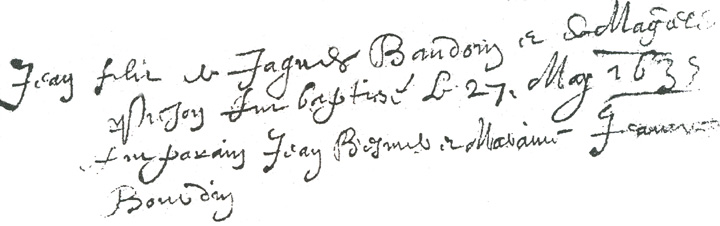 Jean filz de Jaques Baudoin et de Magdel
fut baptisé le 27. May 1635
fut parain Jean et Maraine Jeanne
Boudin